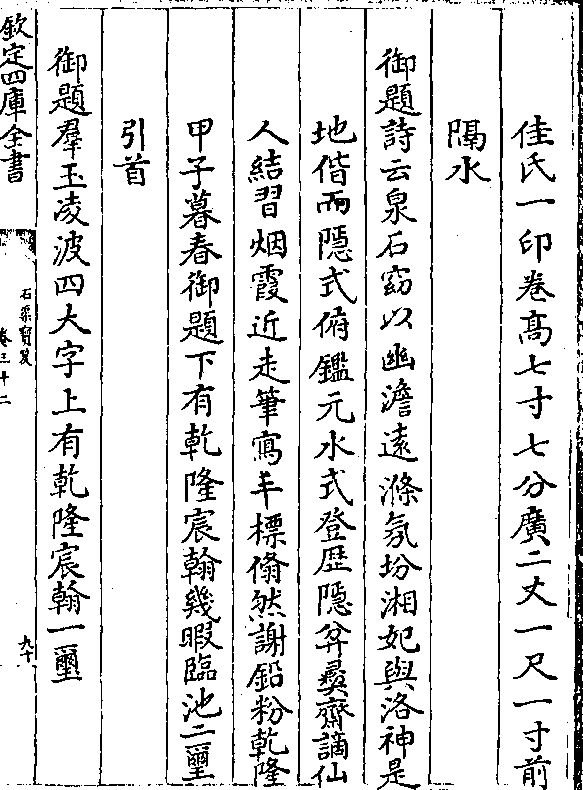 佳氏一印卷髙七寸七分廣二丈一尺一寸前
隔水
御題詩云泉石窈以幽澹遠滌氛坋湘妃與洛神是
地偕而隠式俯鑑元水式登歴隠弅彛齋謫仙
人結習烟霞近走筆寫丰標翛然謝鉛粉乾隆
甲子暮春御題下有乾隆宸翰幾暇臨池二璽
引首
御題羣玉凌波四大字上有乾隆宸翰一璽
欽定四庫全書
石渠寳笈
卷三十二
九十